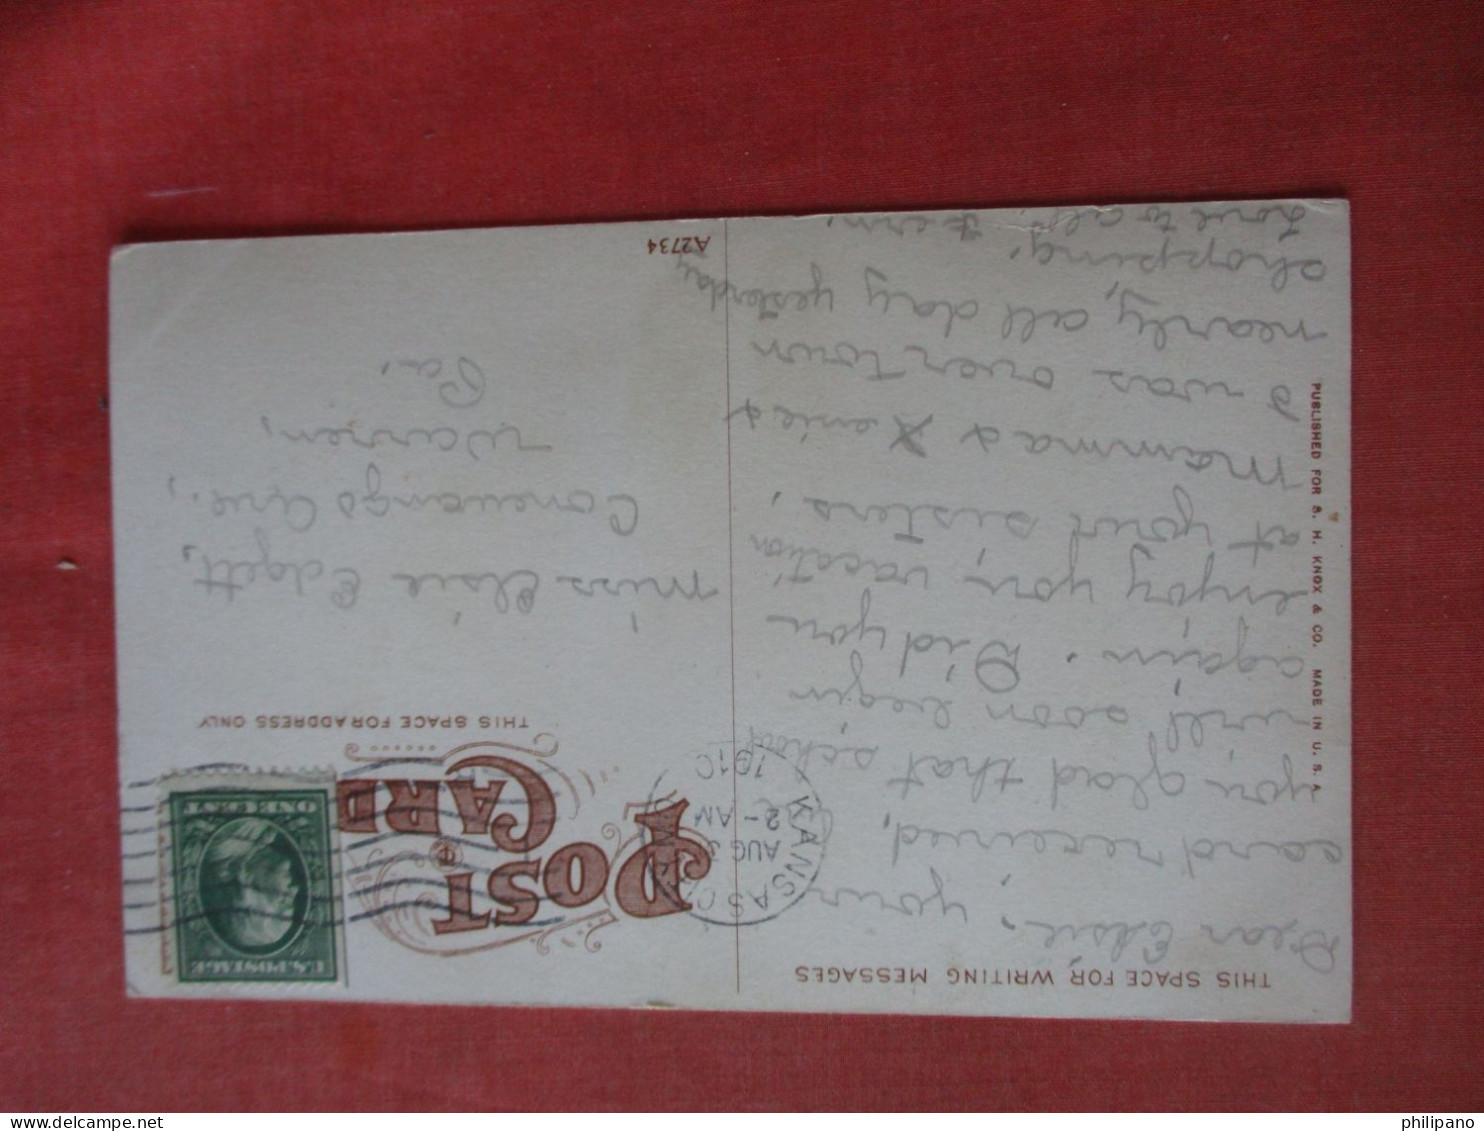 THIS SPACE FOR WRITING MESSAGES
Dear Elsie, your
card received,
you glad that school
will soon begin
again. Did you
enjoy your vacation
at your sisters.
Mamma &
I was over town
nearly all day yesterday
shopping. Fern.
Love to all.
PUBLISHED FOR S. H. KNOX & CO. MADE IN U. S. A.
POST
CARD
THIS SPACE FOR ADDRESS ONLY
KANSAS
AUG 3
2-AM
1910
U.S. POSTAGE
ONE CENT
Miss Elsie Edgett,
Conewango Ave.,
Warren,
Pa.
A2734
philipano
delcampe.net